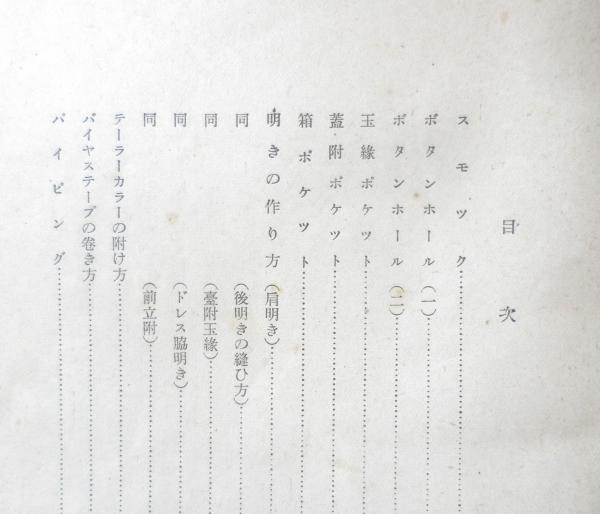 目次
スモツク
ボタンホール(一)
ボタンホール(二)
玉緣ポケツト
蓋附ポケツト
箱ポケツト
明きの作り方(肩明き)
同(後明きの縫ひ方)
同(臺附玉緣)
同(ドレス脇明き)
同(前立附)
テーラーカラーの附け方
バイヤステープの巻き方
パイピング